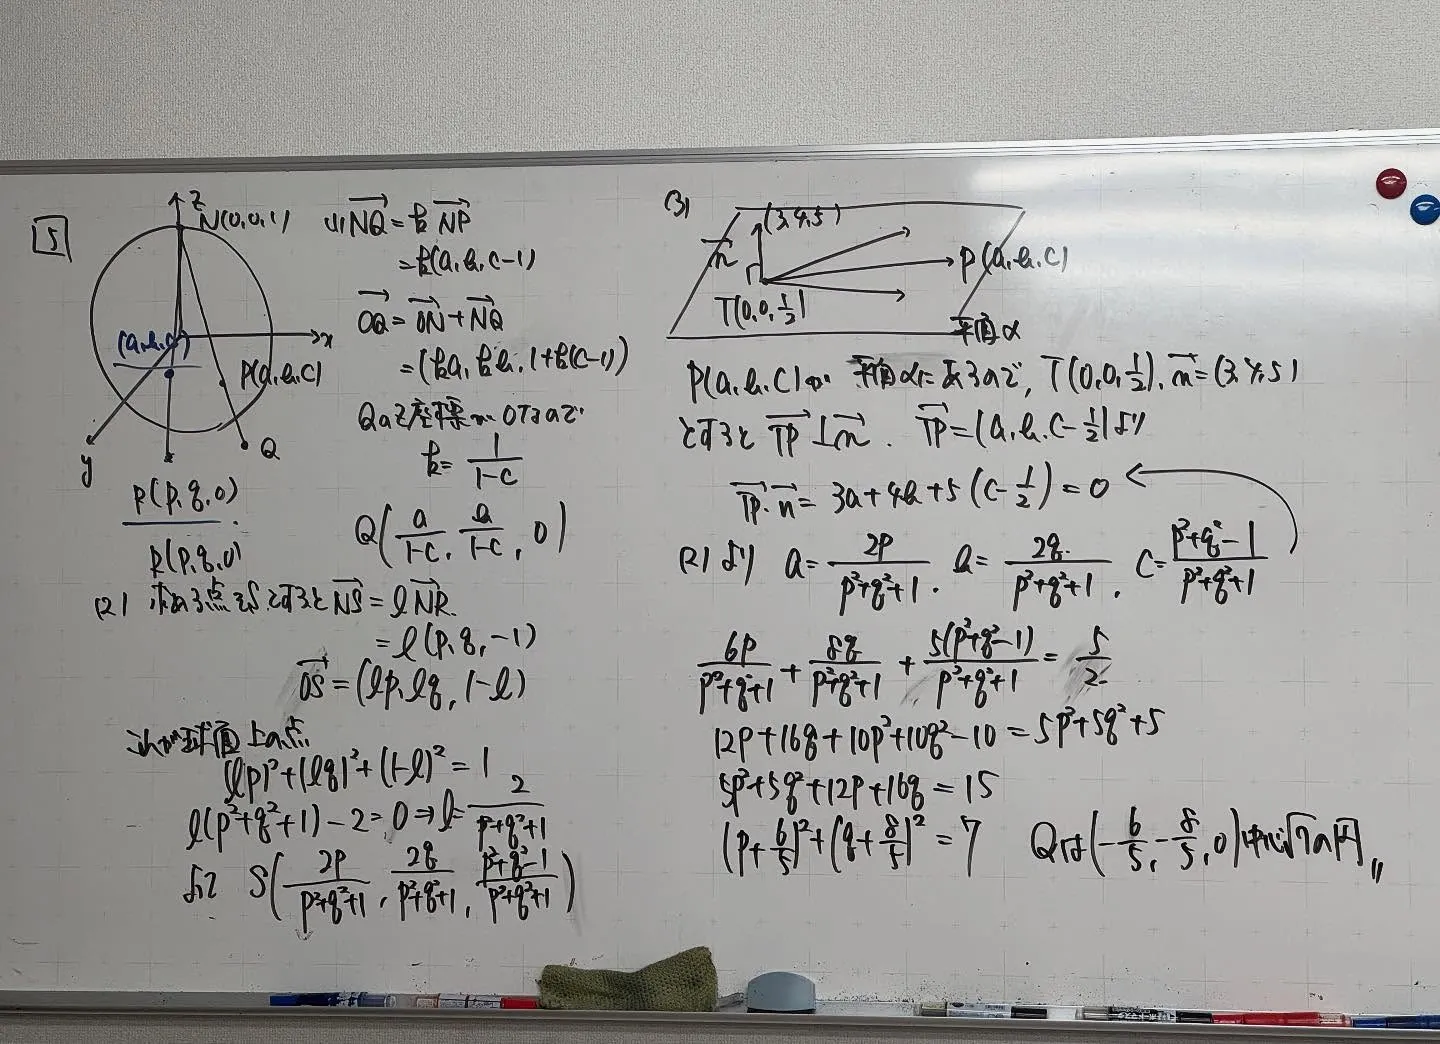 5
z
N(0,0,1)
x
y
(a,b,c)
P(a,b,c)
Q
R(p,q,0)
R(p,q,0)
(1) NQ→ = k NP→
= k(a, b, c-1)
OQ→ = ON→ + NQ→
= (ka, kb, 1+k(c-1))
Qのz座標が0なので
k = 1/(1-c)
Q(a/(1-c), b/(1-c), 0)
(2) 求める点をSとすると NS→ = l NR→
= l(p, q, -1)
OS→ = (lp, lq, 1-l)
これが球面上の点
(lp)²+(lq)²+(1-l)² = 1
l(p²+q²+1)-2=0 ⇒ l = 2/(p²+q²+1)
よって S(2p/(p²+q²+1), 2q/(p²+q²+1), (p²+q²-1)/(p²+q²+1))
(3)
(3,4,5)
n→
T(0,0,1/2)
P(a,b,c)
平面α
P(a,b,c)が平面αにあるので, T(0,0,1/2), n→=(3,4,5)
とすると TP→⊥n→. TP→=(a,b,c-1/2)より
TP→・n→ = 3a+4b+5(c-1/2)=0
(2)より a = 2p/(p²+q²+1), b = 2q/(p²+q²+1), c = (p²+q²-1)/(p²+q²+1)
6p/(p²+q²+1) + 8q/(p²+q²+1) + 5(p²+q²-1)/(p²+q²+1) = 5/2
12p+16q+10p²+10q²-10 = 5p²+5q²+5
5p²+5q²+12p+16q = 15
(p+6/5)²+(q+8/5)² = 7
Qは(-6/5, -8/5, 0)中心√7の円〃